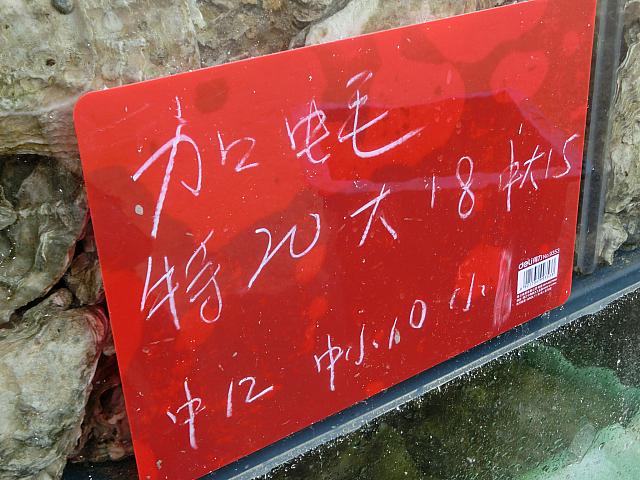 加蚝
特20 大18 中大15
中12 中小10 小
deli 得力 No.9353